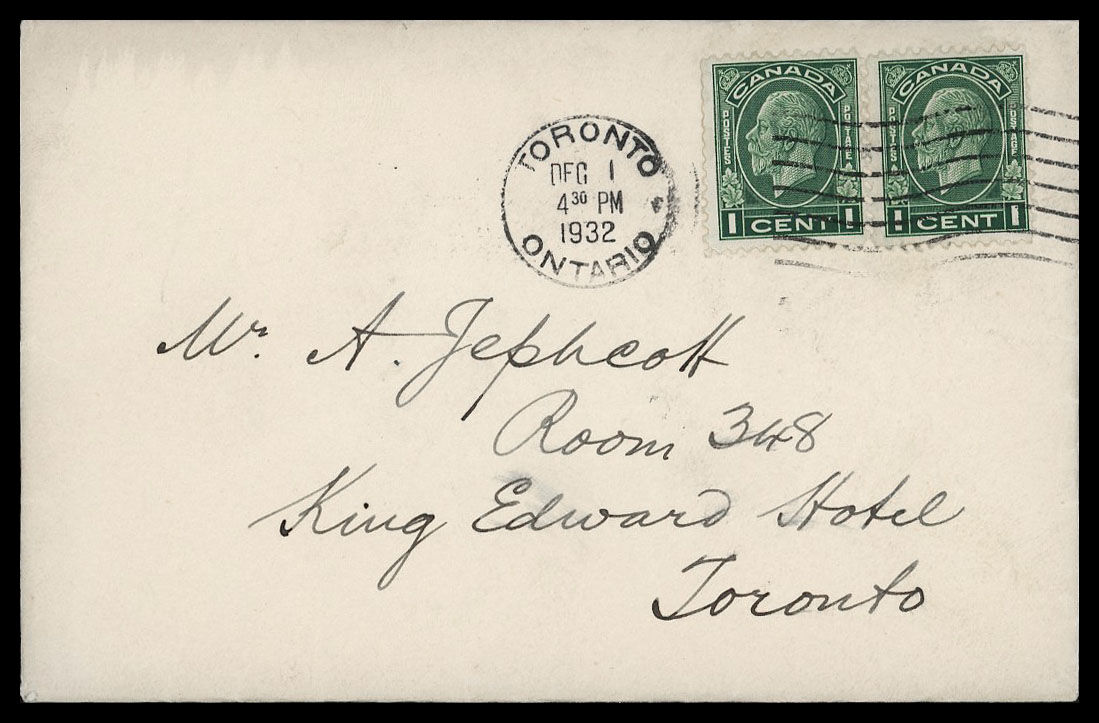 CANADA
POSTES POSTAGE
1 CENT 1
CANADA
POSTES POSTAGE
1 CENT 1
TORONTO
DEC 1
4 30 PM
1932
ONTARIO
Mr. A. Jephcott
Room 348
King Edward Hotel
Toronto